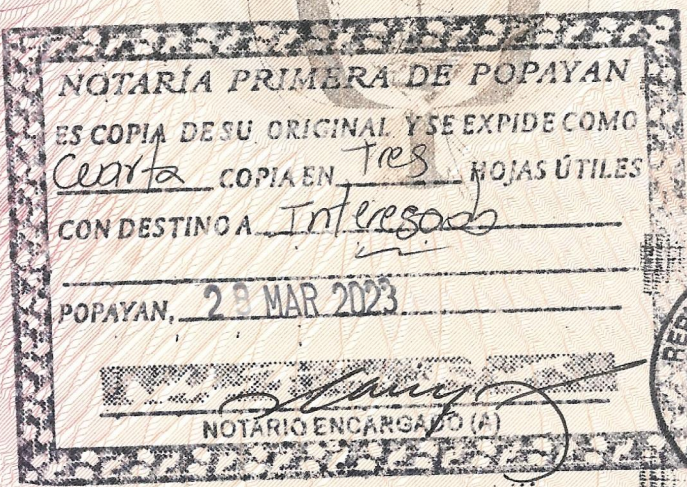 NOTARÍA PRIMERA DE POPAYAN
ES COPIA DE SU ORIGINAL Y SE EXPIDE COMO
Cuarta COPIA EN Tres HOJAS ÚTILES
CON DESTINO A Interesado
POPAYAN, MAR 2023
NOTARIO ENCARGADO (A)
REPU